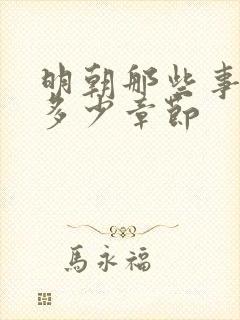 明朝那些事
多少章節
馬永福